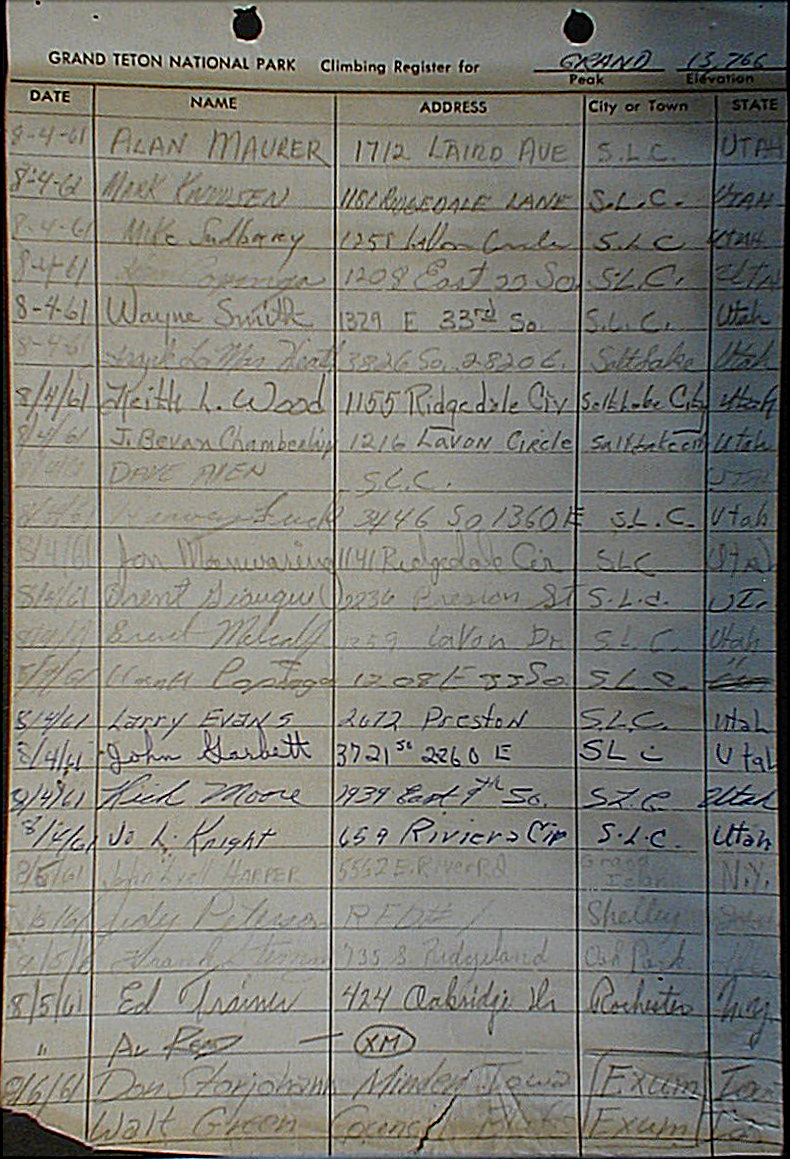 GRAND TETON NATIONAL PARK Climbing Register for GRAND 13,766
Peak Elevation
DATE NAME ADDRESS City or Town STATE
8-4-61 ALAN MAURER 1712 LAIRD AVE S.L.C. UTAH
8-4-61 MARK KNUDSEN 1181 RIDGEDALE LANE S.L.C. UTAH
8-4-61 Mike Sudbury 1258 LaVon Circle S.L.C UTAH
8-4-61 1208 East 33 So. S.L.C. UTAH
8-4-61 Wayne Smith 1329 E 33rd So S.L.C. Utah
8-4-61 3826 So. 2820 E. Salt Lake Utah
8/4/61 Keith L. Wood 1155 Ridgedale Cir Salt Lake City Utah
8/4/61 J. Bevan Chamberlain 1216 LAVON CIRCLE Salt Lake City Utah
DAVE ALLEN S.L.C. UTAH
8/4/61 3446 So 1360 E S.L.C. Utah
8/4/61 Jon Manwaring 1141 Ridgedale Cir SLC Utah
8/4/61 Brent 2236 Preston ST S.L.C. UT.
Brent Metcalf 1259 LaVon Dr S.L.C. Utah
8/4/61 1208 E 33 So S.L.C.
8/4/61 Larry Evans 2672 Preston S.L.C. Utah
8/4/61 John Garbett 3721 So 2260 E SLC Utah
8/4/61 Rich Moore 1939 East 9th So. S.L.C. Utah
8/4/61 Jo L. Knight 659 Riviera Cir S.L.C. Utah
8/5/61 John Lyell HARPER 5562 E. River Rd Grand Island N.Y.
8/5/61 Judy Peterson RFD# 1 Shelley
8/5/61 Frank 735 S. Ridgeland Oak Park Ill
8/5/61 Ed Trainer 424 Oakridge Dr Rochester N.Y.
" AL READ — XM
8/6/61 Don Storjohann Minden Iowa Exum Iowa
Walt Green Council Bluffs Exum Ia.